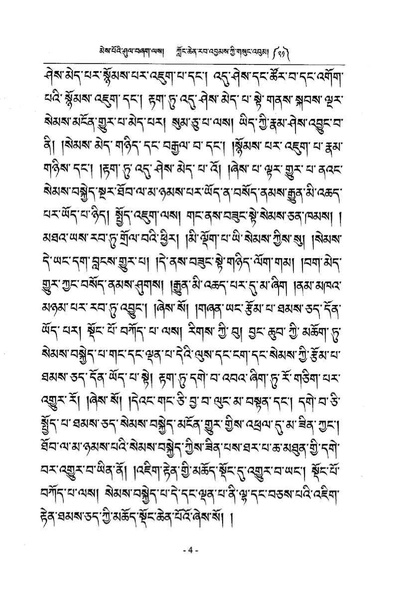 མེས་པོའི་ཤུལ་བཞག་ལས། ཀློང་ཆེན་རབ་འབྱམས་ཀྱི་གསུང་འབུམ། (༢༡)
ཤེས་མེད་པར་སྙོམས་པར་འཇུག་པ་དང་། འདུ་ཤེས་དང་ཚོར་བ་དང་འགོག་
པའི་སྙོམས་འཇུག་དང་། རྟག་ཏུ་འདུ་ཤེས་མེད་པ་སྟེ་གནས་སྐབས་ལྔར་
སེམས་མངོན་གྱུར་པ་མེད་པར། སུམ་ཅུ་པ་ལས། ཡིད་ཀྱི་རྣམ་ཤེས་འབྱུང་བ་
ནི། །སེམས་མེད་གཉིད་དང་བརྒྱལ་བ་དང་། །སྙོམས་པར་འཇུག་པ་རྣམ་
གཉིས་དང་། །རྟག་ཏུ་འདུ་ཤེས་མེད་པ་འོ། །ཞེས་པ་ལྟར་གྱུར་པ་ནའང་
སེམས་བསྐྱེད་སྔར་ཐོབ་ལ་མ་ཉམས་པར་ཡོད་ན་བསོད་ནམས་རྒྱུན་མི་འཆད་
པར་ཡོད་པ་ཉིད། སྤྱོད་འཇུག་ལས། གང་ནས་བཟུང་སྟེ་སེམས་ཅན་ཁམས། །
མཐའ་ཡས་རབ་ཏུ་གྲོལ་བའི་ཕྱིར། །མི་ལྡོག་པ་ཡི་སེམས་ཀྱིས་སུ། །སེམས་
དེ་ཡང་དག་བླངས་གྱུར་པ། །དེ་ནས་བཟུང་སྟེ་གཉིད་ལོག་གམ། །བག་མེད་
གྱུར་ཀྱང་བསོད་ནམས་ཤུགས། །རྒྱུན་མི་འཆད་པར་དུ་མ་ཞིག །ནམ་མཁའ་
མཉམ་པར་རབ་ཏུ་འབྱུང་། །ཞེས་སོ། །གཞན་ཡང་རྩོམ་པ་ཐམས་ཅད་དོན་
ཡོད་པར། སྡོང་པོ་བཀོད་པ་ལས། རིགས་ཀྱི་བུ། བྱང་ཆུབ་ཀྱི་མཆོག་ཏུ་
སེམས་བསྐྱེད་པ་གང་དང་ལྡན་པ་དེའི་ལུས་དང་ངག་དང་སེམས་ཀྱི་རྩོམ་པ་
ཐམས་ཅད་དོན་ཡོད་པ་སྟེ། རྟག་ཏུ་དགེ་བ་འབའ་ཞིག་ཏུ་རོ་གཅིག་པར་
འགྱུར་རོ། །ཞེས་སོ། །དེའང་གང་ཅི་བྱ་བ་ལུང་མ་བསྟན་དང་། དགེ་བ་ཅི་
སྤྱོད་པ་ཐམས་ཅད་སེམས་བསྐྱེད་མངོན་གྱུར་གྱིས་འཕྲལ་དུ་མ་ཟིན་ཀྱང་།
ཐོབ་ལ་མ་ཉམས་པའི་སེམས་བསྐྱེད་ཀྱིས་ཟིན་པས་ཐར་པ་ཆ་མཐུན་གྱི་དགེ་
བར་འགྱུར་བ་ཡིན་ནོ། །འཇིག་རྟེན་གྱི་མཆོད་སྡོང་དུ་འགྱུར་བ་ཡང་། སྡོང་པོ་
བཀོད་པ་ལས། སེམས་བསྐྱེད་པ་དེ་དང་ལྡན་པ་ནི་ལྷ་དང་བཅས་པའི་འཇིག་
རྟེན་ཐམས་ཅད་ཀྱི་མཆོད་སྡོང་ཆེན་པོའོ་ཞེས་སོ། །
- 4 -